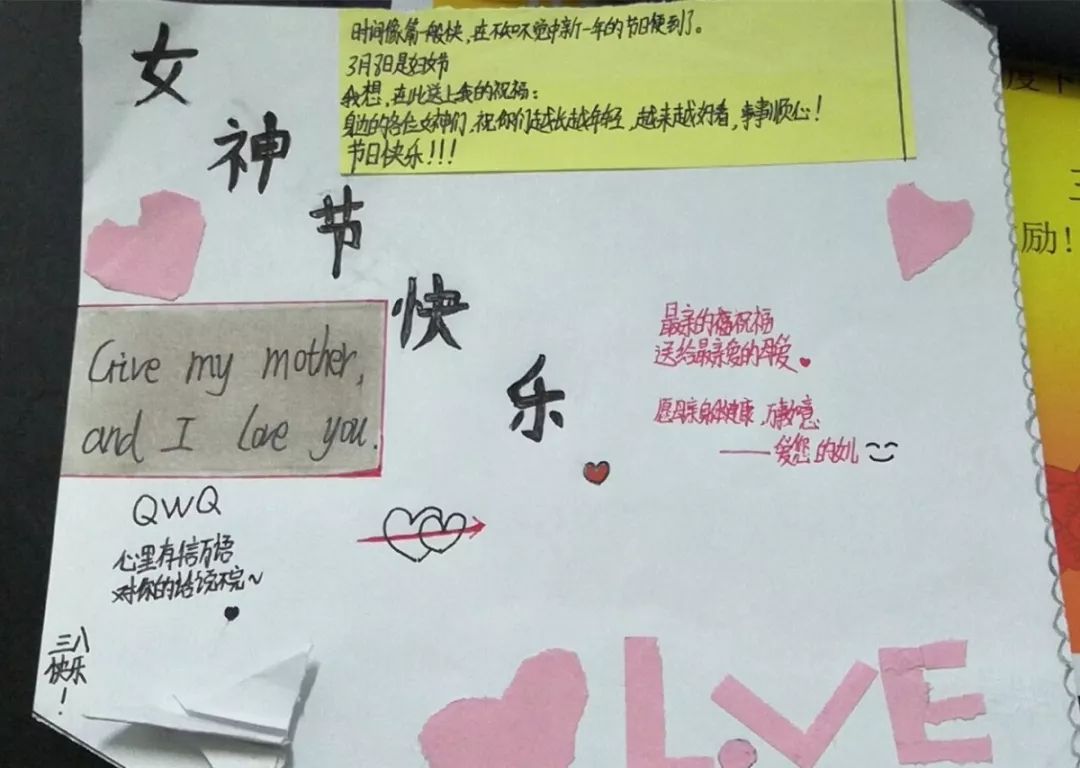 女神节快乐
时间像箭一般快,在不知不觉中新一年的节日便到了。
3月8日是妇女节
我想,在此送上我的祝福:
身边的各位女神们,祝你们越长越年轻,越来越好看,事事顺心!
节日快乐!!!
Give my mother,
and I love you.
最亲的福祝福
送给最亲爱的母爱
愿母亲身体健康,万事如意
——爱您的女儿
QWQ
心里存信万语
对你的话说不完~
三八
快乐
!
L.VE
度
励!